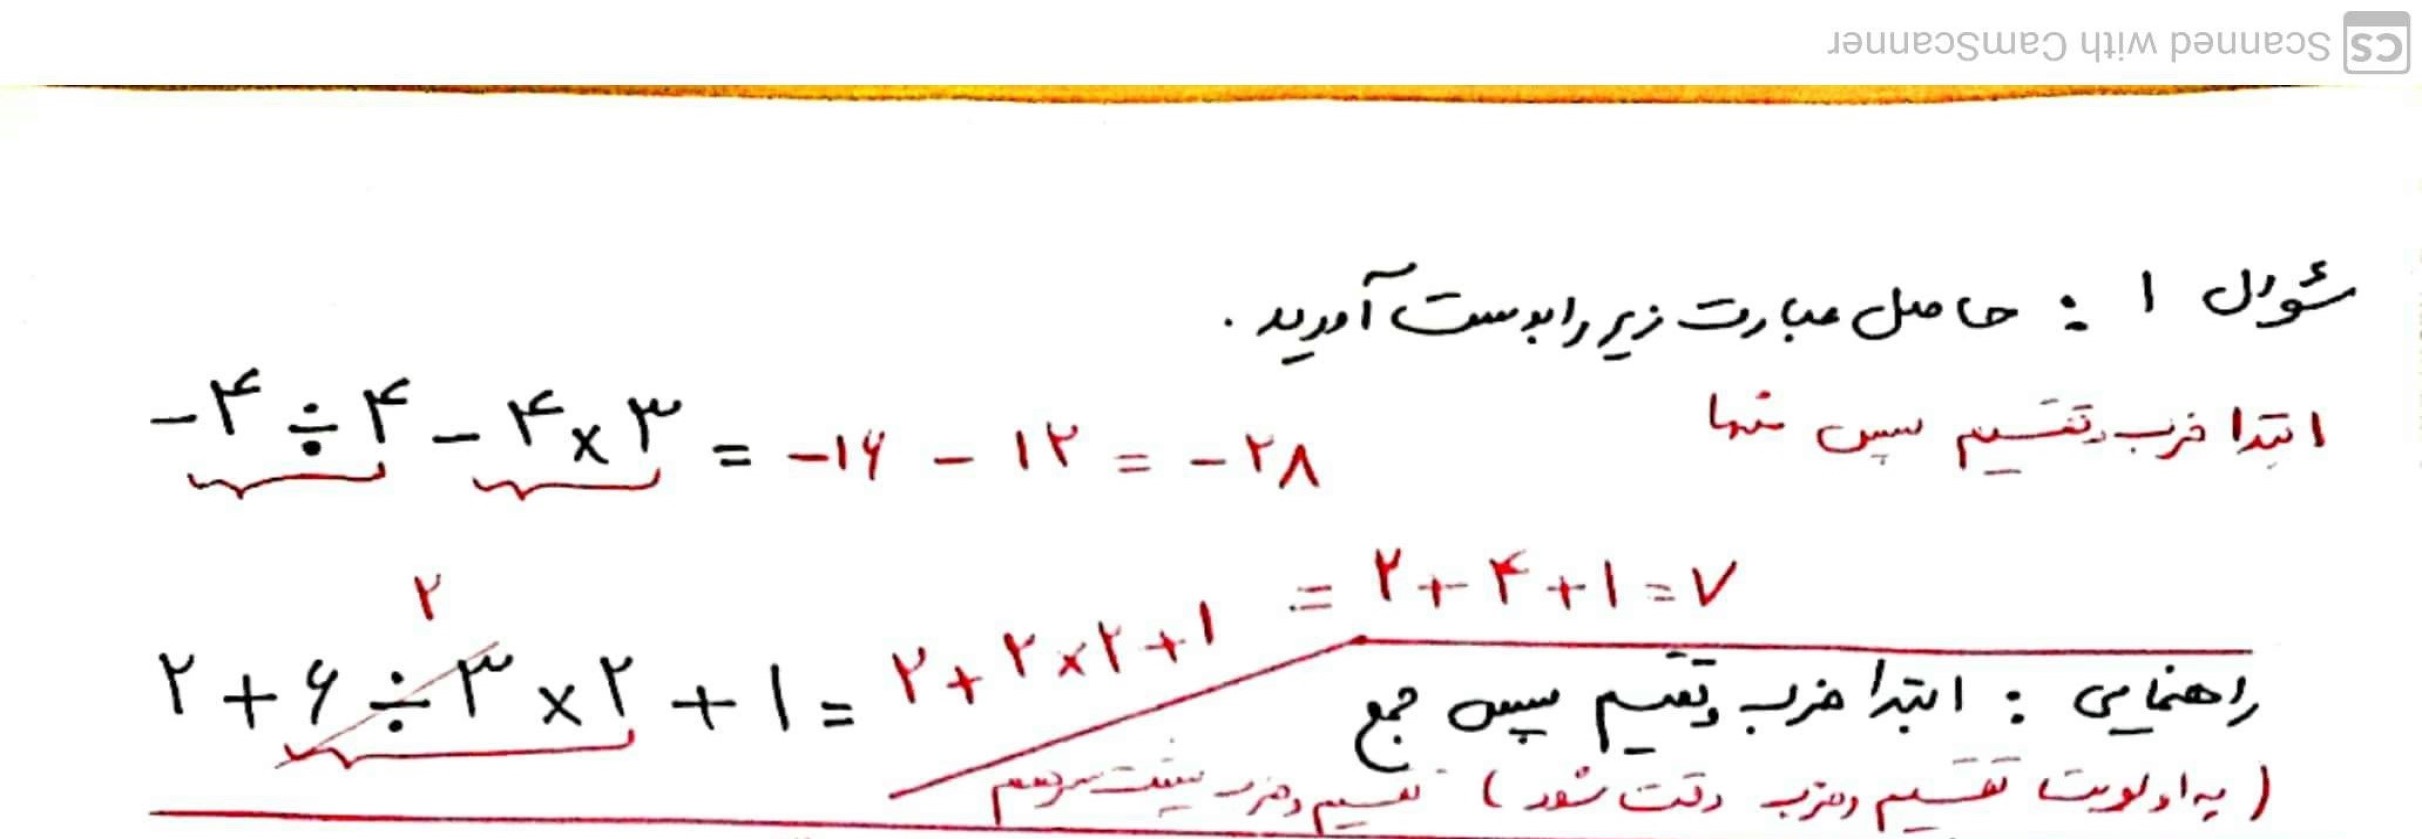 Scanned with CamScanner
سئوال ۱ : حاصل عبارت زیر را بدست آورید .
ابتدا ضرب و تقسیم سپس منها
-۴ ÷ ۴ - ۴ × ۳ = -۱۶ - ۱۲ = -۲۸
۲
۲ + ۶ ÷ ۳ × ۲ + ۱ = ۲ + ۲ × ۲ + ۱ = ۲ + ۴ + ۱ = ۷
راهنمایی : ابتدا ضرب و تقسیم سپس جمع
( به اولویت تقسیم و ضرب دقت شود ) تقسیم و ضرب پشت سر هم